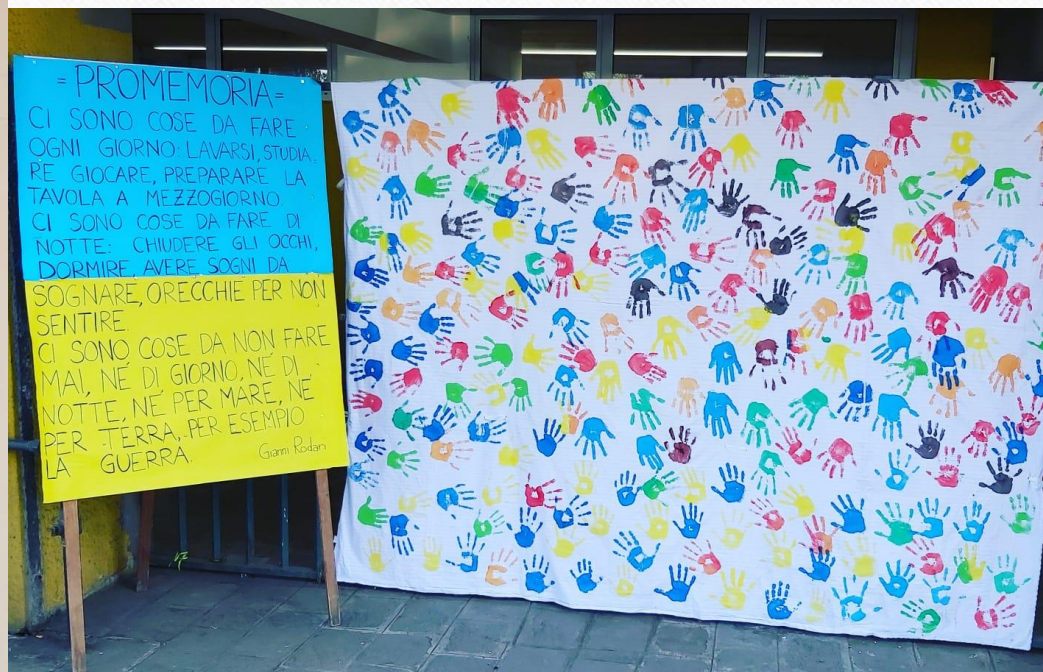 = PROMEMORIA =
CI SONO COSE DA FARE
OGNI GIORNO: LAVARSI, STUDIA.
RE GIOCARE, PREPARARE LA
TAVOLA A MEZZOGIORNO.
CI SONO COSE DA FARE DI
NOTTE: CHIUDERE GLI OCCHI,
DORMIRE, AVERE SOGNI DA
SOGNARE, ORECCHIE PER NON
SENTIRE.
CI SONO COSE DA NON FARE
MAI, NÉ DI GIORNO, NÉ DI
NOTTE, NÉ PER MARE, NÉ
PER TERRA, PER ESEMPIO
LA GUERRA.
Gianni Rodari